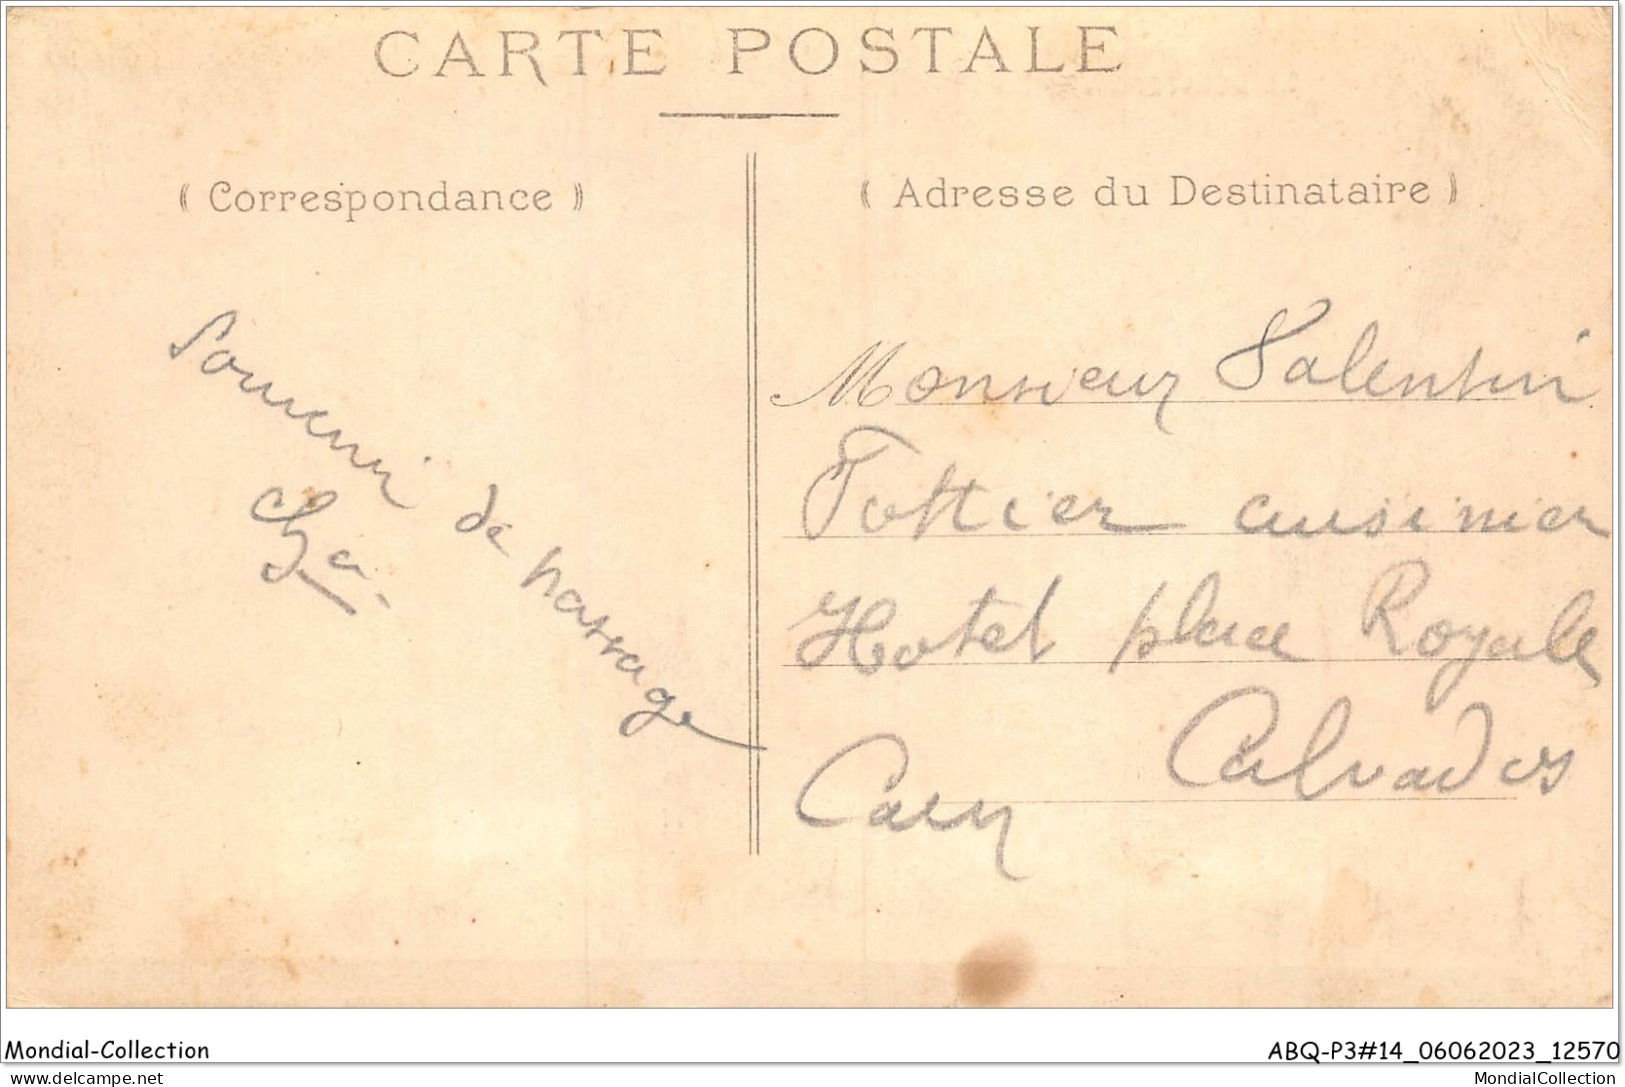 CARTE POSTALE
( Correspondance )
( Adresse du Destinataire )
Souvenir de passage
Monsieur Valentin
Pottier cuisinier
Hotel place Royale
Caen Calvados
Mondial-Collection
ABQ-P3#14_06062023_12570
delcampe.net
MondialCollection